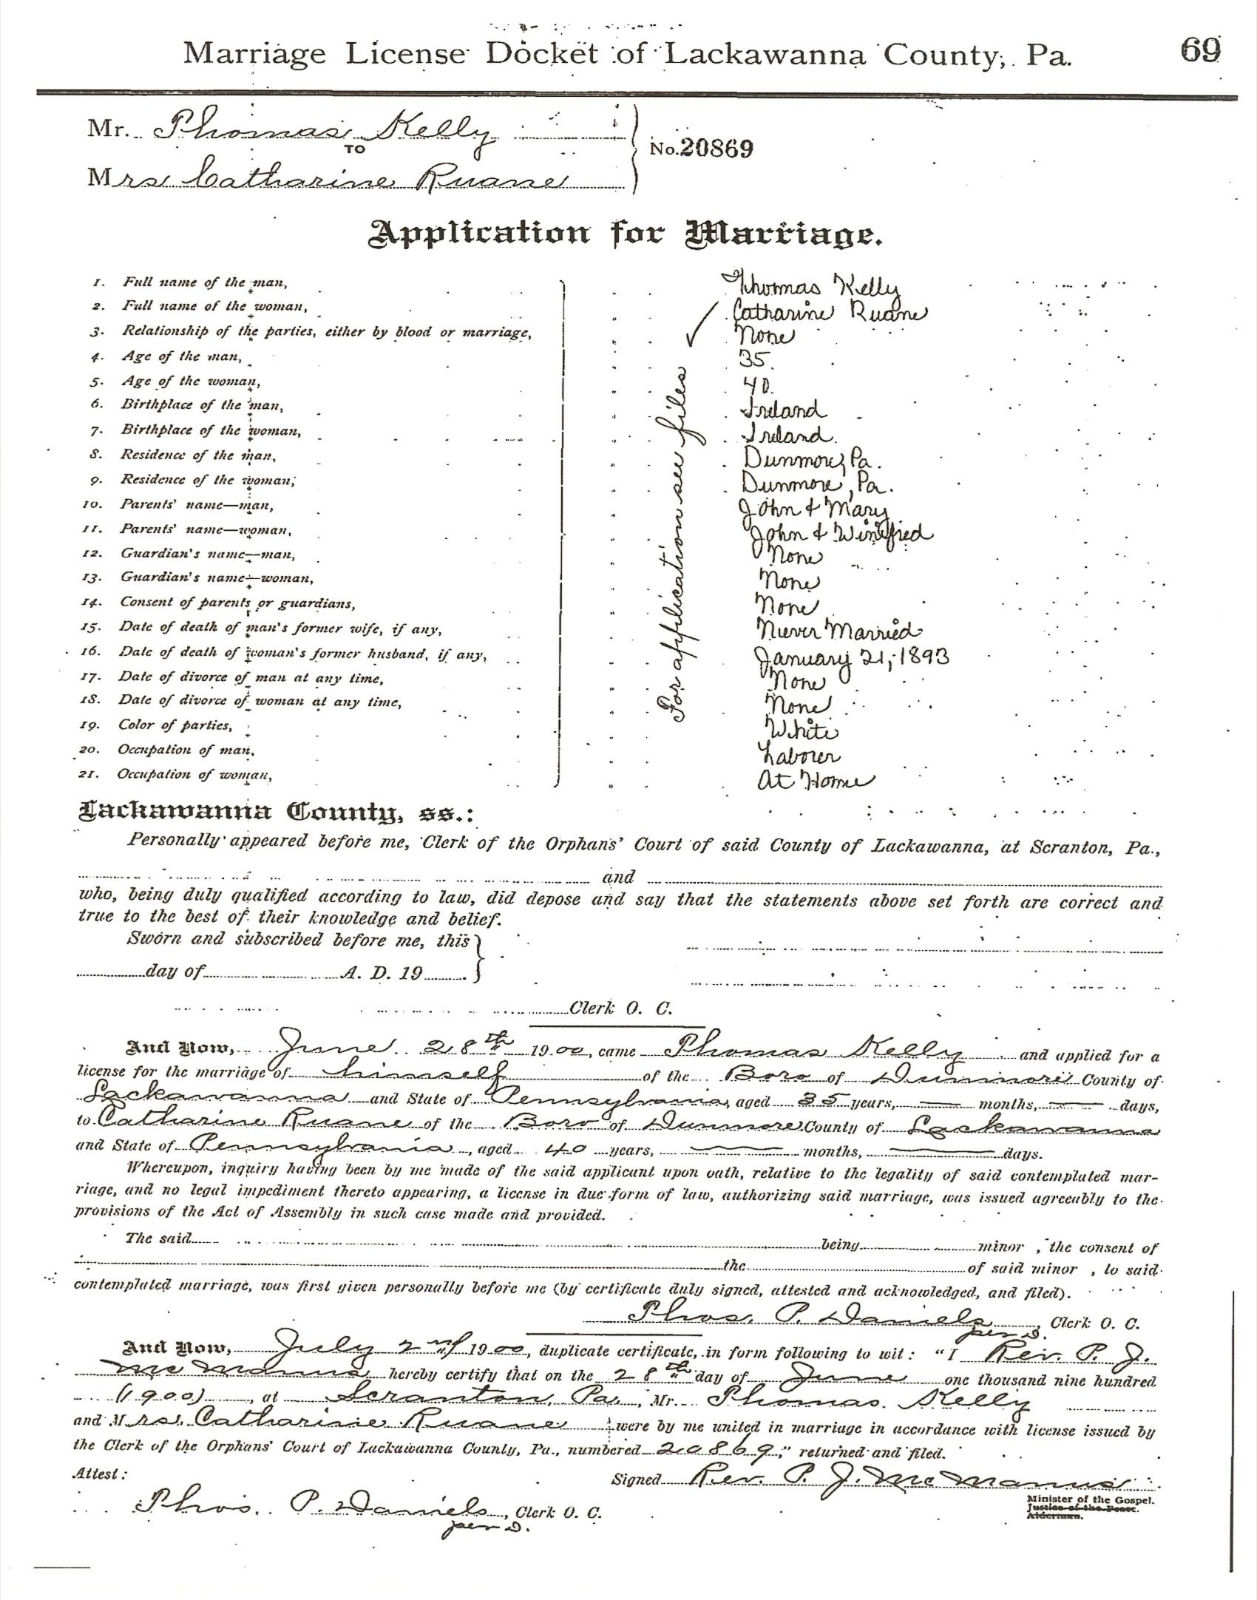 Marriage License Docket of Lackawanna County, Pa. 69
Mr. Thomas Kelly
TO
No. 20869
Mrs Catharine Ruane
Application for Marriage.
1. Full name of the man, Thomas Kelly
2. Full name of the woman, Catharine Ruane
3. Relationship of the parties, either by blood or marriage, None
4. Age of the man, 35
5. Age of the woman, 40
6. Birthplace of the man, Ireland
7. Birthplace of the woman, Ireland
8. Residence of the man, Dunmore, Pa.
9. Residence of the woman, Dunmore, Pa.
10. Parents' name—man, John & Mary
11. Parents' name—woman, John & Winefred
12. Guardian's name—man, None
13. Guardian's name—woman, None
14. Consent of parents or guardians, None
15. Date of death of man's former wife, if any, Never Married
16. Date of death of woman's former husband, if any, January 21, 1893
17. Date of divorce of man at any time, None
18. Date of divorce of woman at any time, None
19. Color of parties, White
20. Occupation of man, Laborer
21. Occupation of woman, At Home
For application see files
Lackawanna County, ss.:
Personally appeared before me, Clerk of the Orphans' Court of said County of Lackawanna, at Scranton, Pa.,
and
who, being duly qualified according to law, did depose and say that the statements above set forth are correct and
true to the best of their knowledge and belief.
Sworn and subscribed before me, this
day of A. D. 19
Clerk O. C.
And Now, June 28th 1900, came Thomas Kelly and applied for a
license for the marriage of himself of the Boro of Dunmore County of
Lackawanna and State of Pennsylvania, aged 35 years, — months, — days,
to Catharine Ruane of the Boro of Dunmore County of Lackawanna
and State of Pennsylvania, aged 40 years, — months, — days.
Whereupon, inquiry having been by me made of the said applicant upon oath, relative to the legality of said contemplated mar-
riage, and no legal impediment thereto appearing, a license in due form of law, authorizing said marriage, was issued agreeably to the
provisions of the Act of Assembly in such case made and provided.
The said being minor , the consent of
the of said minor , to said
contemplated marriage, was first given personally before me (by certificate duly signed, attested and acknowledged, and filed).
Thos. P. Daniels, Clerk O. C.
per D.
And Now, July 2nd 1900, duplicate certificate, in form following to wit: "I Rev. P. J.
McManus hereby certify that on the 28th day of June one thousand nine hundred
(1900), at Scranton, Pa., Mr. Thomas Kelly
and Mrs. Catharine Ruane were by me united in marriage in accordance with license issued by
the Clerk of the Orphans' Court of Lackawanna County, Pa., numbered 20869," returned and filed.
Attest: Signed Rev. P. J. McManus
Minister of the Gospel.
Justice of the Peace.
Alderman.
Thos. P. Daniels, Clerk O. C.
per D.